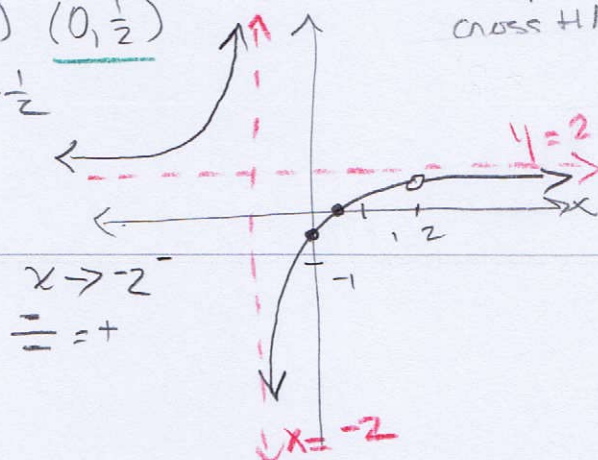 ) (0, ½)
cross HA
½
y = 2
x
1 2
-1
x → -2⁻
= +
x = -2